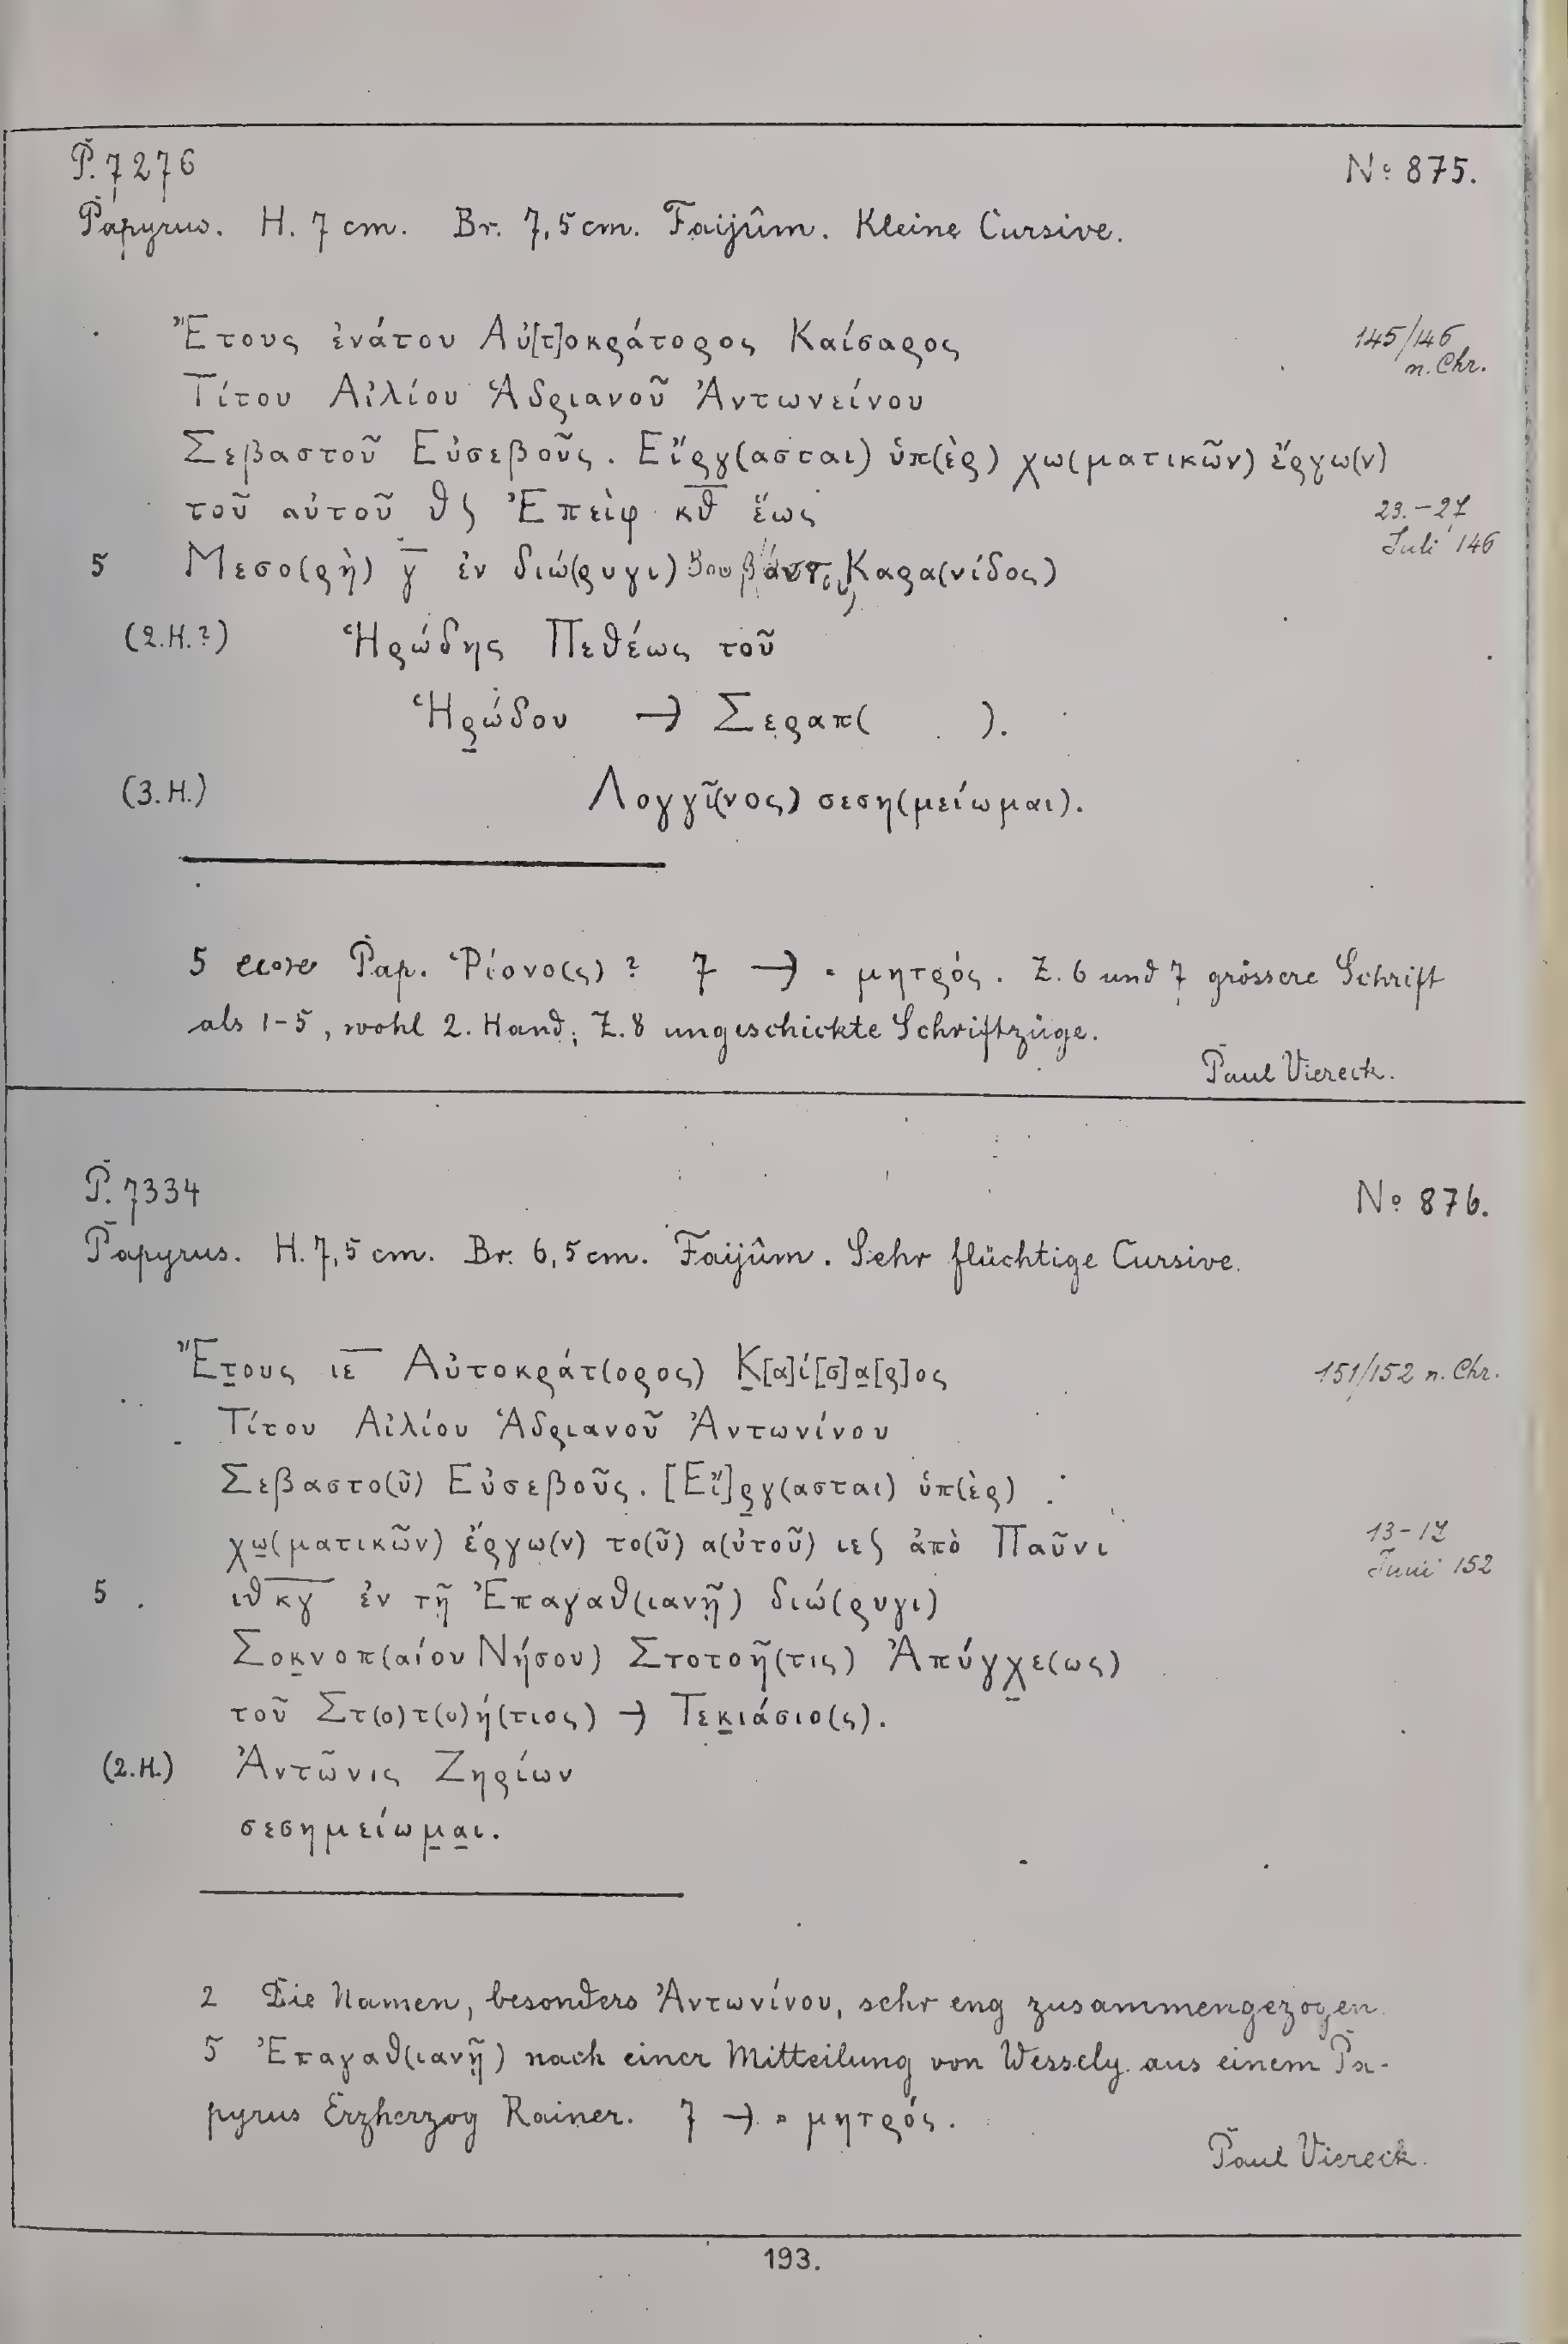 P. 7276
Nº 875.
Papyrus. H. 7 cm. Br. 7,5 cm. Faijûm. Kleine Cursive.
Ἔτους ἐνάτου Αὐ[τ]οκράτορος Καίσαρος
145/146
n. Chr.
Τίτου Αἰλίου Ἁδριανοῦ Ἀντωνείνου
Σεβαστοῦ Εὐσεβοῦς. Εἴργ(ασται) ὑπ(ὲρ) χω(ματικῶν) ἔργω(ν)
τοῦ αὐτοῦ θϛ Ἐπεὶφ κθ̅ ἕως
23.-27
Juli 146
5 Μεσο(ρὴ) γ̅ ἐν διώ(ρυγι) Καρα(νίδος)
(2. H.?) Ἡρώδης Πεθέως τοῦ
Ἡρ̣ώδου –) Σεραπ( ).
(3. H.) Λογγῖ(νος) σεση(μείωμαι).
5 Pap. Ῥίονο(ς)? 7 –) · μητρός. Z. 6 und 7 grössere Schrift
als 1-5, wohl 2. Hand; Z. 8 ungeschickte Schriftzüge.
Paul Viereck.
P. 7334
Nº 876.
Papyrus. H. 7,5 cm. Br. 6,5 cm. Faijûm. Sehr flüchtige Cursive.
Ἔτ̣ους ιε̅ Αὐτοκράτ(ορος) Κ̣[α]ί[σ]α̣[ρ]ος
151/152 n. Chr.
Τίτου Αἰλίου Ἁδριανοῦ Ἀντωνίνου
Σεβαστο(ῦ) Εὐσεβοῦς. [Εἴ]ρ̣γ(ασται) ὑπ(ὲρ)
χω̣(ματικῶν) ἔργω(ν) το(ῦ) α(ὐτοῦ) ιεϛ ἀπὸ Παῦνι
13-17
Juni 152
5 ιθ κγ̅ ἐν τῇ Ἐπαγαθ(ιανῇ) διώ(ρυγι)
Σοκ̣νοπ(αίου Νήσου) Στοτοῆ(τις) Ἀπύγχ̣ε(ως)
τοῦ Στ(ο)τ(ο)ή(τιος) –) Τεκ̣ιάσιο(ς).
(2. H.) Ἀντῶνις Ζηρίων
σεσημείωμ̣α̣ι.
2 Die Namen, besonders Ἀντωνίνου, sehr eng zusammengezogen.
5 Ἐπαγαθ(ιανῇ) nach einer Mitteilung von Wessely aus einem Pa-
pyrus Erzherzog Rainer. 7 –) · μητρός.
Paul Viereck.
193.